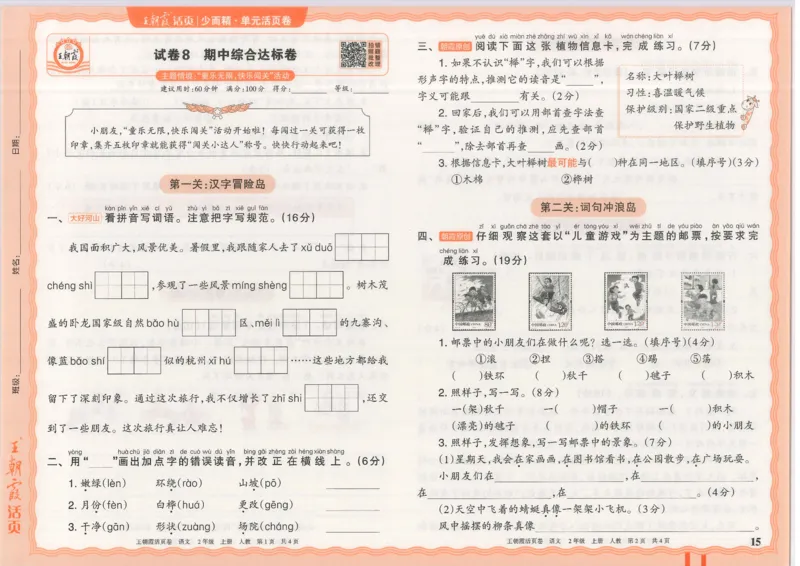 王朝霞活页 少而精·单元活页卷
试卷8 期中综合达标卷
主题情境:“童乐无限,快乐闯关”活动
建议用时:60分钟 满分:100分 得分: 等级:
小朋友,“童乐无限,快乐闯关”活动开始啦!每闯过一关可获得一枚
印章,集齐五枚印章就能获得“闯关小达人”称号。快快行动起来吧!
第一关:汉字冒险岛
kàn pīn yīn xiě cí yǔ zhù yì bǎ zì xiě guī fàn
一、大好河山 看拼音写词语。注意把字写规范。(16分)
我国面积广大,风景优美。暑假里,我跟随家人去了xǔ duō
chéng shì ,参观了一些风景míng shèng 。树木茂
盛的卧龙国家级自然bǎo hù 区、měi lì 的九寨沟、
像蓝bǎo shí 似的杭州xī hú ……这些地方都给我
留下了深刻印象。通过这次旅行,我不仅增长了zhī shi ,还交
到了一些朋友。这次旅行真让人难忘!
二、用“ ”画出加点字的错误读音,并改正在横线上。(6分)
1. 嫩绿(lèn) 环绕(rào) 山坡(pō)
2. 月份(fèn) 白桦(huá) 更改(gēng)
3. 干净(gān) 形状(zuàng) 场院(cháng)
王朝霞活页卷 语文 2年级 上册 人教 第1页 共4页
三、朝霞原创 阅读下面这张植物信息卡,完成练习。(7分)
1. 如果不认识“榉”字,我们可以根据
形声字的特点,推测它的读音是“ ”,
字义可能跟 有关。(2分)
2. 回家后,我们可以用部首查字法查
“榉”字,验证自己的推测,应先查部首
“ ”,除去部首再查 画。(2分)
3. 根据信息卡,大叶榉树最可能与( )种在同一地区。(填序号)(3分)
①木棉 ②桦树
名称:大叶榉树
习性:喜温暖气候
保护级别:国家二级重点
保护野生植物
第二关:词句冲浪岛
四、朝霞原创 仔细观察这套以“儿童游戏”为主题的邮票,按要求完
成练习。(19分)
1. 邮票中的小朋友们在做什么呢?选一选。(填序号)(4分)
①滚 ②捏 ③搭 ④踢 ⑤荡
( )铁环 ( )秋千 ( )毽子 ( )积木
2. 照样子,写一写。(8分)
一(架)秋千 一( )帽子 一( )积木
(漂亮)的毽子 ( )的铁环 ( )的小朋友
3. 照样子,发挥想象,写一写邮票中的景象。(7分)
(1)星期天,我会在家画画,在图书馆看书,在公园散步,在广场玩耍。
小朋友们在 ,在 ,
在 ,在 。(4分)
(2)天空中飞着的蜻蜓真像一架架小飞机。(3分)
风中摇摆的柳条真像 。
王朝霞活页卷 语文 2年级 上册 人教 第2页 共4页 15
日期:
姓名:
班级:
王朝霞活页